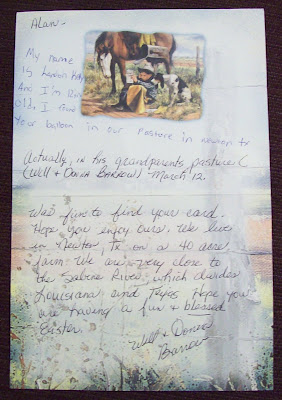 Alan-
My name
is Landon Kelly
And I'm
old, I found
Your balloon in our Pasture in newton tx
Actually, in his grandparents pasture (
(Will & Donna BARROW) March 12.
Was fun to find your card.
Hope you enjoy ours. We live
in Newton, TX on a 40 acre
farm. We are very close to
the Sabine River, which divides
Louisiana and Texas. Hope you
are having a fun & blessed
Easter.
Will & Donna
Barrow